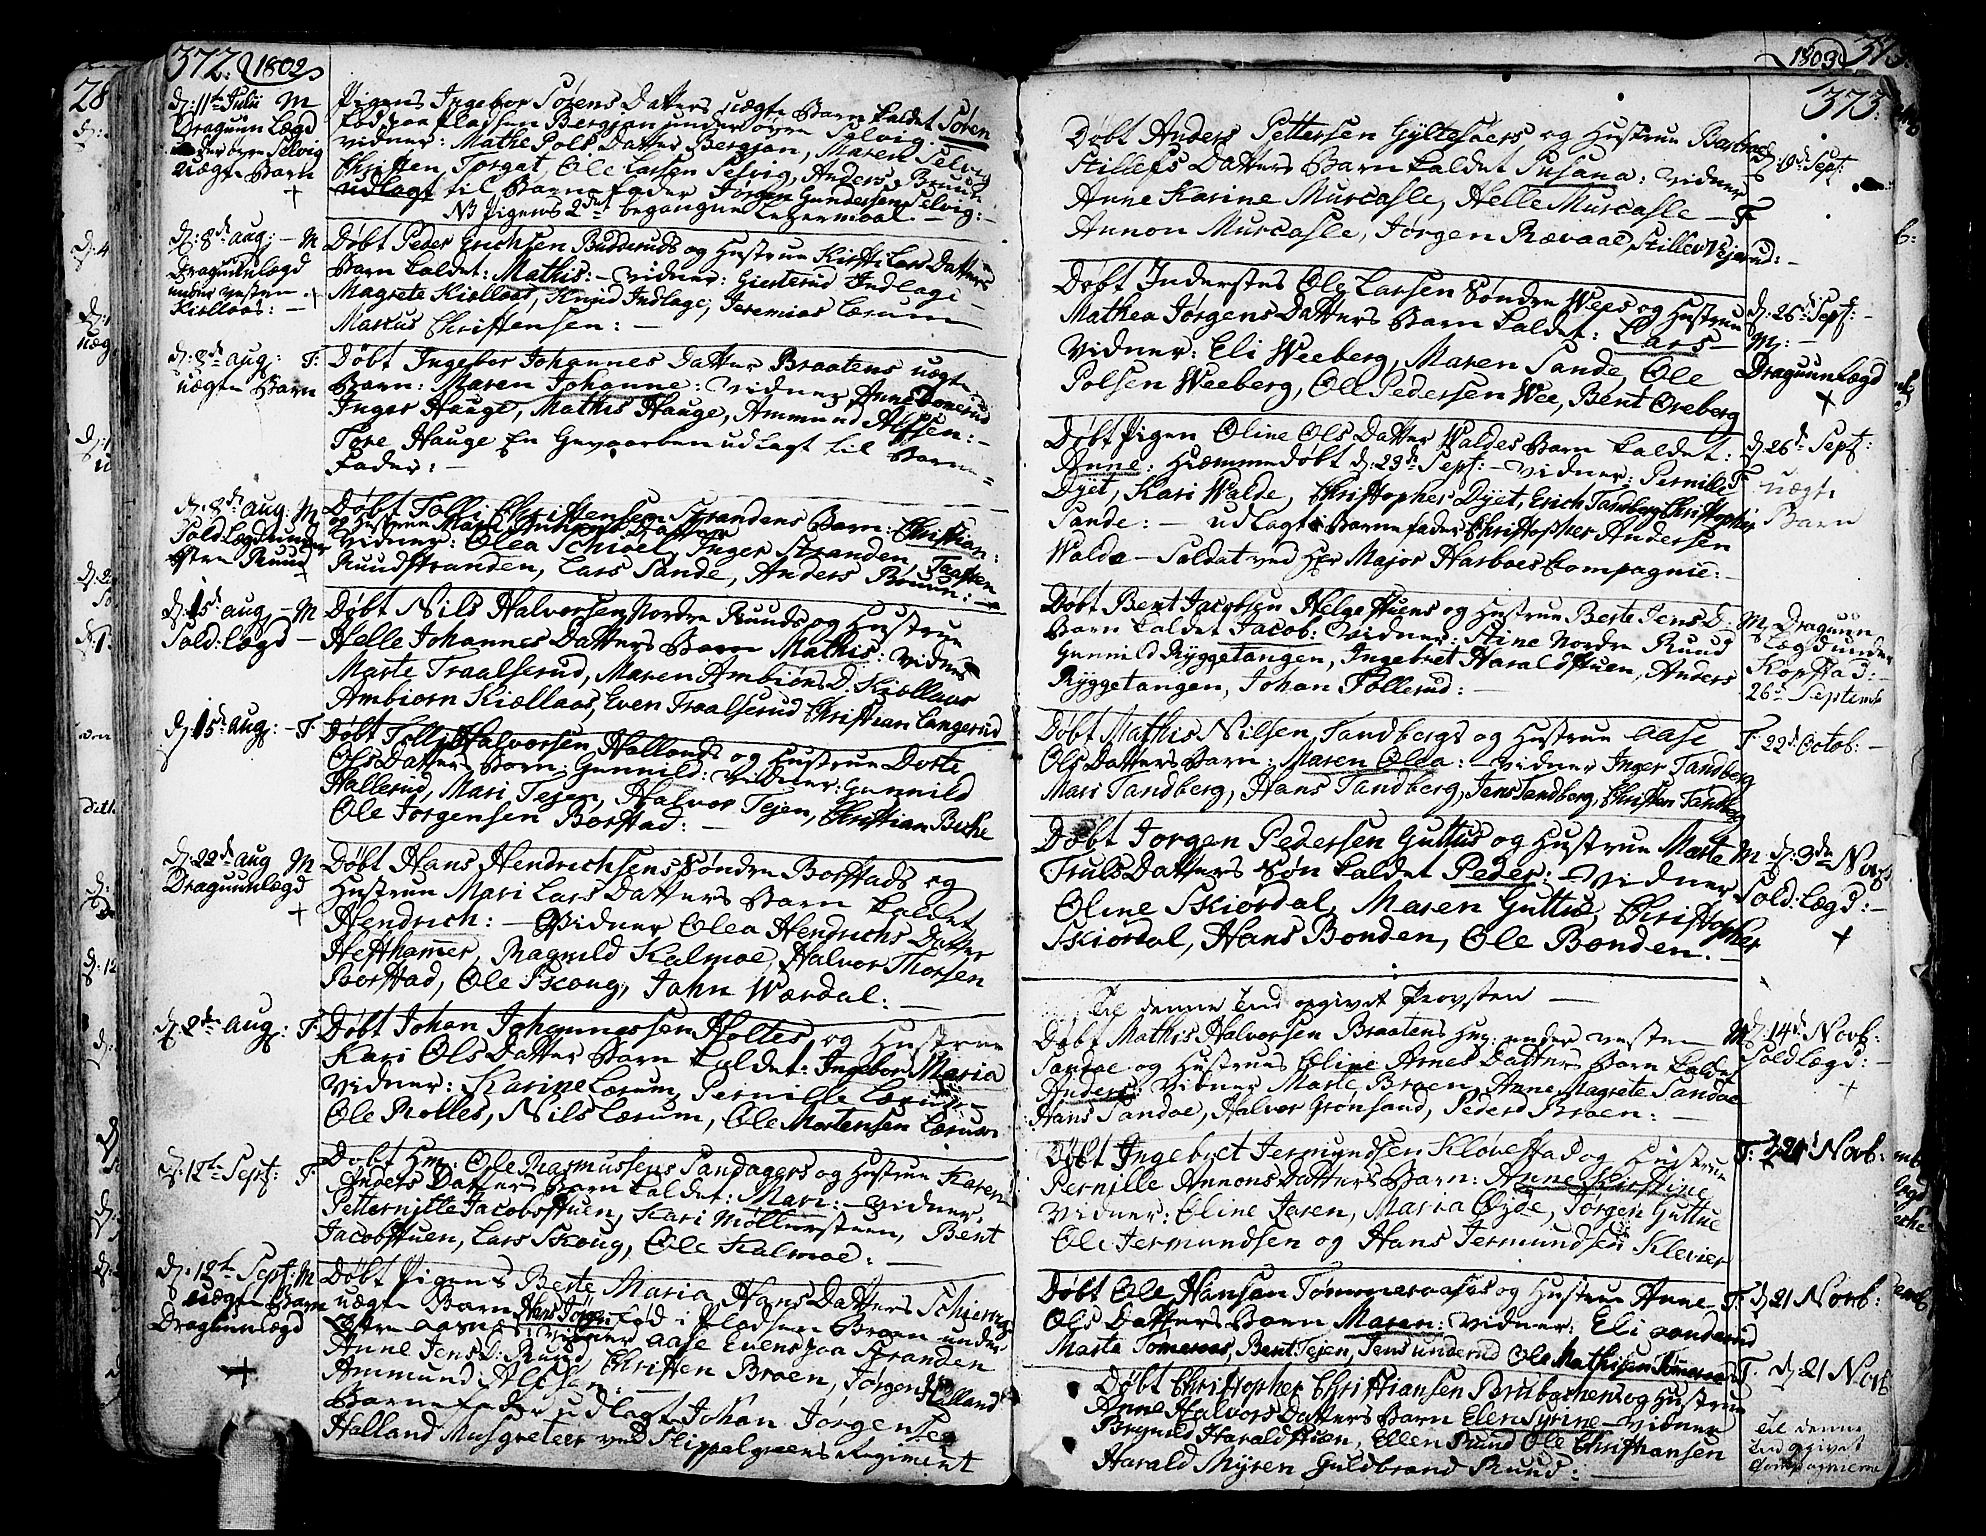 372. 1802
d: 11te Julii M
Dragunn Lægd
under øvre Selvig
uægte Barn
+
Pigens Ingebor Sørens Datters uægte Barn kaldet Søren
fød paa Pladsen Bergjan under øvre Selvig.
vidner: Mathe Pols Datter Bergjan, Maren Selvig
Christen Torgat, Ole Larsen Selvig, Anders Bruun
udlagt til Barnefader Jørgen Gundersen Selvig:
NB Pigens 2det begangne Leyermaal. —
d: 8de aug: — M
Dragunnlægd
under vesten
Kiøllaas: —
Døbt Peder Erichsen Budderuds og Hustrue Kirsti Lars Datters
Barn kaldet: Mathis: — vidner: Gieterud Indlagi —
Magrete Kiøllaas, Knud Indlage, Jeremias Lærum
Marcus Christensen: —
d: 8de aug: F:
uægte Barn
Døbt Ingebor Johannes Datter Braatens uægte
Barn: Maren Johanne: vidner Anne Domerud
Inger Hauge, Mathis Hauge, Ammund Alfsen: —
Tore Hauge En Gevaarben udlagt til Barne=
Fader: —
d: 8de aug: M
Sold Lægd under
østre Ruud
Døbt Tolli Christensen Strandens Barn: Christian:
og Hustrue Mari
vidner: Olea Schioel, Inger Stranden, Taasten
Ruudstranden, Lars Sande, Anders Bruun: —
d: 15de aug, — M
Sold: Lægd —
Døbt Nils Halvorsen Nordre Ruuds og Hustrue
Helle Johannes Datters Barn Mathis: vidner
Marte Traalserud, Maren Ambiørns D. Kiøllaas
Ambiorn Kiøllaas, Even Traalserud Christian Langerud
d: 15de aug: — F
Døbt Tolli Halvorsen Hallands og Hustrue Dorte
Ols Datters Barn: Gunnild: vidner: Gunnild
Hallerud, Mari Tejen, Halvor Tejen, Christian Beche
Ole Jorgensen Borstad: —
d: 22de aug M
Dragunnlægd
+
Døbt Hans Hendrichsens Søndre Borstads og
Hustrue Mari Lars Datters Barn kaldet
Hendrich: — Vidner Olea Hendrichs Datter
Hesthamer, Ragnild Kalmoe, Halvor Thorsen
Borstad, Ole Skoug, John Wærdal: —
aug: F:
Døbt Johan Johannessen Holtes, og Hustrue
Kari Ols Datter Barn kaldet: Ingebor Maria
vidner: Karine Lærum, Pernille Lærum
Ole Holtes, Nils Lærum, Ole Mortensen Lærum
d: 12te Sept: F
Døbt Hm: Ole Rasmussens Sandagers og Hustrue Karen
Anders Datters Barn kaldet: Mari: — vidner,
Petternille Jacobstuen, Kari Møllerstuen, Bent
Jacobstuen, Lars Skoug, Ole Kalmoe: —
d: 12te Sept: M
uægte Barn
Dragunnlægd
+
Døbt Pigens Berte Maria Hans Datters Schierings
uægte Barn Hans Jørgen fød i Pladsen Broen under
østre aasnes: vidner aase Evens paa Stranden
Anne Jens D: Ruud, Christen Broen, Jørgen Halland
Ammund Alfsen —
Barnefader udlagt Johan Jørgensen
Halland Musqueteer ved Slippelgreens Regiment
1803 373
373.
Døbt Anders Pettersen Gyltesaers og Hustrue Barbrae
Stillefs Datters Barn kaldet Susana: vidner
Anne Karine Murcasle, Helle Murcasle — F
Annon Murcasle, Jørgen Rævaal, Stillev Vejerud: —
d: 19de Sept:
Døbt Inderstes Ole Larsen Søndre Wees og Hustrue
Mathea Jørgens Datters Barn kaldet: Lars —
Vidner: Eli Weeberg, Maren Sande, Ole
Polsen Weeberg, Ole Pedersen Wee, Bent Oreberg
d: 26de Sept: —
M: —
Dragunnlægd
+
Døbt Pigen Oline Ols Datter Waldes Barn kaldet:
Anne: Hiemmedøbt d: 23de Sept: — vidner: Pernille
Dyet, Kari Walde, Christopher Dyet, Erich Tandberg Christopher
Sande: — udlagt i Barnefader Christopher Andersen
Walde — Soldat ved Hr Major Harboes Compagnie: —
d: 26de Sept:
F
uægte
Barn
Døbt Bent Jacobsen Helgestuens og Hustrue Berte Jens D:
Barn kaldet Jacob: Vidner: Stine Nordre Ruud
Gunnild Ryggetangen, Ingebret Haraldstuen, Anders
Ryggetangen, Johan Follerud: —
M, Dragunn
Lægd under
Kopstad: —
26de Septemb
Døbt Mathis Nilsen, Tandbergs og Hustrue aase
Ols Datters Barn: Maren Olea: — vidner Inger Tandberg
Mari Tandberg, Hans Tandberg, Jens Tandberg, Christen Tandberg
F: 22de Octob: —
Døbt Jorgen Pedersen Guttus og Hustrue Marte
Truls Datters Søn kaldet Peder: — vidner
Oline Skiørdal, Maren Guttue, Christopher
Skiørdal, Hans Bonden, Ole Bonden. —
M d: 3de Novb
Sold: Lægd: —
+
Til denne Tid opgivet Provsten —
Døbt Mathis Halvorsen Braatens Hug: under vesten
Sandae og Hustrues Oline Arnes Datters Barn kaldet
Anders: vidner Marte Broen, Anne Magrete Sandae
Hans Sandae, Halvor Grønsand, Peder Broen: —
M d: 14de Novb:
Sold Lægd: —
+
Døbt Ingebret Jermundsen Kløvestad og Hustrue
Pernille Annons Datters Barn: Anne Kirstine
Vidner: Oline Jaren, Maria Øyde, Jørgen Guttue
Ole Jermundsen og Hans Jermundsen Klever
F: d: 21de Novb:
Døbt Ole Hansen Tømmeraases og Hustrue Anne
Ols Datters Barn Maren: vidner: Eli
Marte Tømeraas, Bent Tejen, Jens underud Ole Mathisen Tømeraas
F: d: 21 Novb:
Døbt Christopher Christiansen Brubachens og Hustrue
Anne Halvors Datters Barn Elen Syrine — vidner
Bregned Haraldstuen, Ellen Ruud Ole Christiansen
Harald Myren Guldbrand Ruud: —
F: d: 21 Novb
Til denne
Tid opgivet
Compagnierne